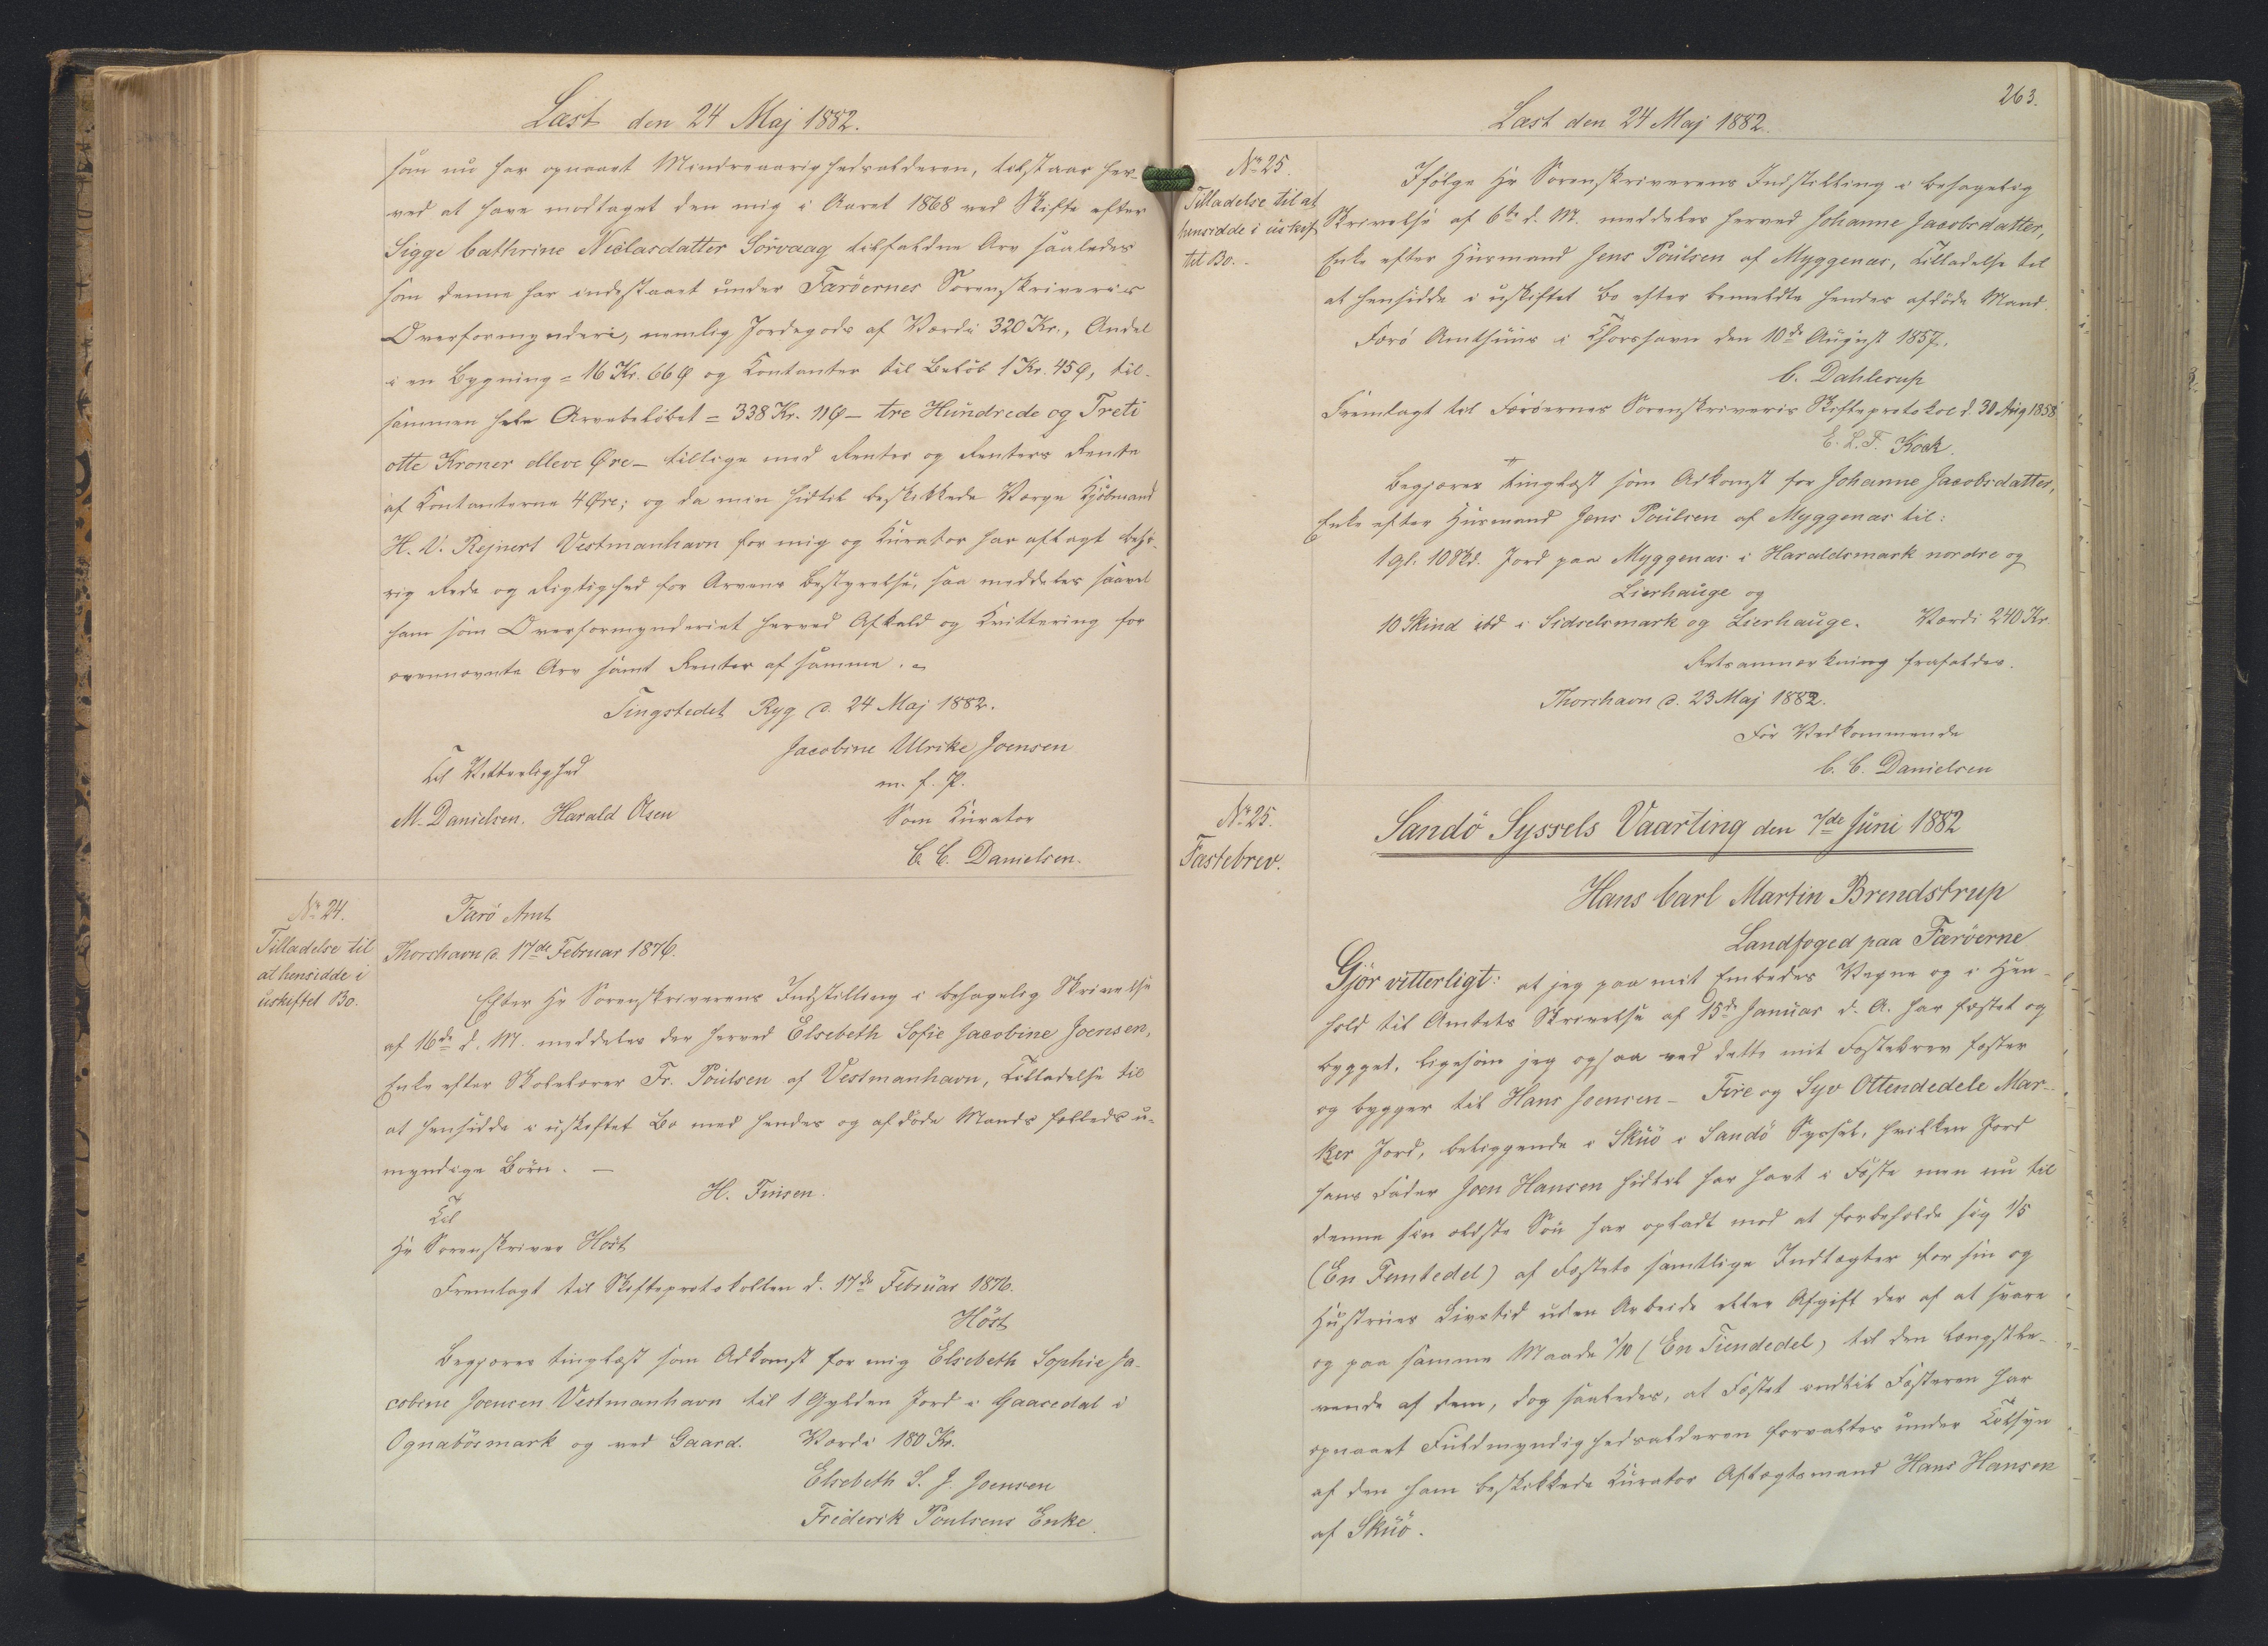 Læst den 24 Maj 1882.
som nu har opnaaet Mindreaarighedsalderen, tilstaar her-
ved at have modtaget den mig i Aaret 1868 ved Skifte efter
Sigge Cathrine Niclasdatter Sörvaag tilfaldne Arv saaledes
som denne har indestaaet under Færöernes Sorenskriveris
Overformynderi, nemlig Jordegods af Værdi 320 Kr., Andel
i en Bygning = 16 Kr. 66 Ø og Contanter til Belöb 1 Kr. 45 Ø, til-
sammen hele Arvebelöbet = 338 Kr. 11 Ø – tre Hundrede og Treti
otte Kroner elleve Øre – tillige med Renter og Renters Rente
af Contanterne 4 Øre; og da min hidtil beskikkede Værge Kjöbmand
H. V. Rejnert Vestmanhavn for mig og Kurator har aflagt behö-
rig Rede og Rigtighed for Arvens Bestyrelse, saa meddeles saavel
ham som Overformynderiet herved Afkald og Kvittering for
ovennævnte Arv samt Renter af samme. –
Tingstedet Ryg d. 24 Maj 1882.
Jacobine Ulrike Joensen
m. f. P.
Til Vitterlighed
M. Danielsen. Harald Olsen
Som Kurator
C. C. Danielsen.
No 24.
Tilladelse til
at hensidde i
uskiftet Bo.
Færö Amt
Thorshavn d. 17de Februar 1876.
Efter Hr Sorenskriverens Indstilling i behagelig Skrivelse
af 16de d. M. meddeles der herved Elsebeth Sofie Jacobine Joensen,
Enke efter Skolelærer Fr. Poulsen af Vestmanhavn, Tilladelse til
at hensidde i uskiftet Bo med hendes og afdöde Mands fælleds u-
myndige Börn. –
H. Finsen.
Til
Hr Sorenskriver Höst
Fremlagt til Skifteprotokollen d. 17de Februar 1876.
Höst
Begjæres tinglæst som Adkomst for mig Elsebeth Sophie Ja-
cobine Joensen Vestmanhavn til 1 Gylden Jord i Gaasedal i
Ognabösmark og ved Gaard. Værdi 180 Kr.
Elsebeth S. J. Joensen
Friderik Poulsens Enke.
263.
Læst den 24 Maj 1882.
No 25.
Tilladelse til at
hensidde i uskif-
tet Bo. –
Ifölge Hr Sorenskriverens Indstilling i behagelig
Skrivelse af 6te d. M. meddeles herved Johanne Jacobsdatter,
Enke efter Husmand Jens Poulsen af Myggenæs, Tilladelse til
at hensidde i uskiftet Bo efter bemeldte hendes afdöde Mand.
Færö Amthuus i Thorshavn den 10de August 1857.
C. Dahlerup
Fremlagt til Færöernes Sorenskriveris Skifteprotokol d. 30 Aug 1858
E. L. F. Kock.
Begjæres tinglæst som Adkomst for Johanne Jacobsdatter,
Enke efter Husmand Jens Poulsen af Myggenæs til:
1 gl. 10 Skd. Jord paa Myggenæs i Haraldsmark nordre og
Lierhauge og
10 Skind ibd i Sidselsmark og Lierhauge. Værdi 240 Kr.
Retsanmærkning frafaldes.
Thorshavn d. 23 Maj 1882.
For Vedkommende
C. C. Danielsen
No 25.
Fæstebrev.
Sandö Syssels Vaarting den 7de Juni 1882
Hans Carl Martin Brendstrup
Landfoged paa Færöerne
Gjör vitterligt: at jeg paa mit Embedes Vegne og i Hen-
hold til Amtets Skrivelse af 15de Januar d. A. har fæstet og
bygget, ligesom jeg ogsaa ved dette mit Fæstebrev fæster
og bygger til Hans Joensen – Fire og Syv Ottendedele Mar-
ker Jord, beliggende i Skuö i Sandö Syssel, hvilken Jord
hans Fader Joen Hansen hidtil har havt i Fæste men nu til
denne sin ældste Sön har opladt mod at forbeholde sig 1/5
(En Femtedel) af Fæstets samtlige Indtægter for sin og
Hustrues Livstid uden Arbeide eller Afgift der af at svare
og paa samme Maade 1/10 (En Tiendedel) til den længstle-
vende af dem, dog saaledes, at Fæstet indtil Fæsteren har
opnaaet Fuldmyndighedsalderen forvaltes under Tilsyn
af den ham beskikkede Kurator Aftægtsmand Hans Hansen
af Skuö.